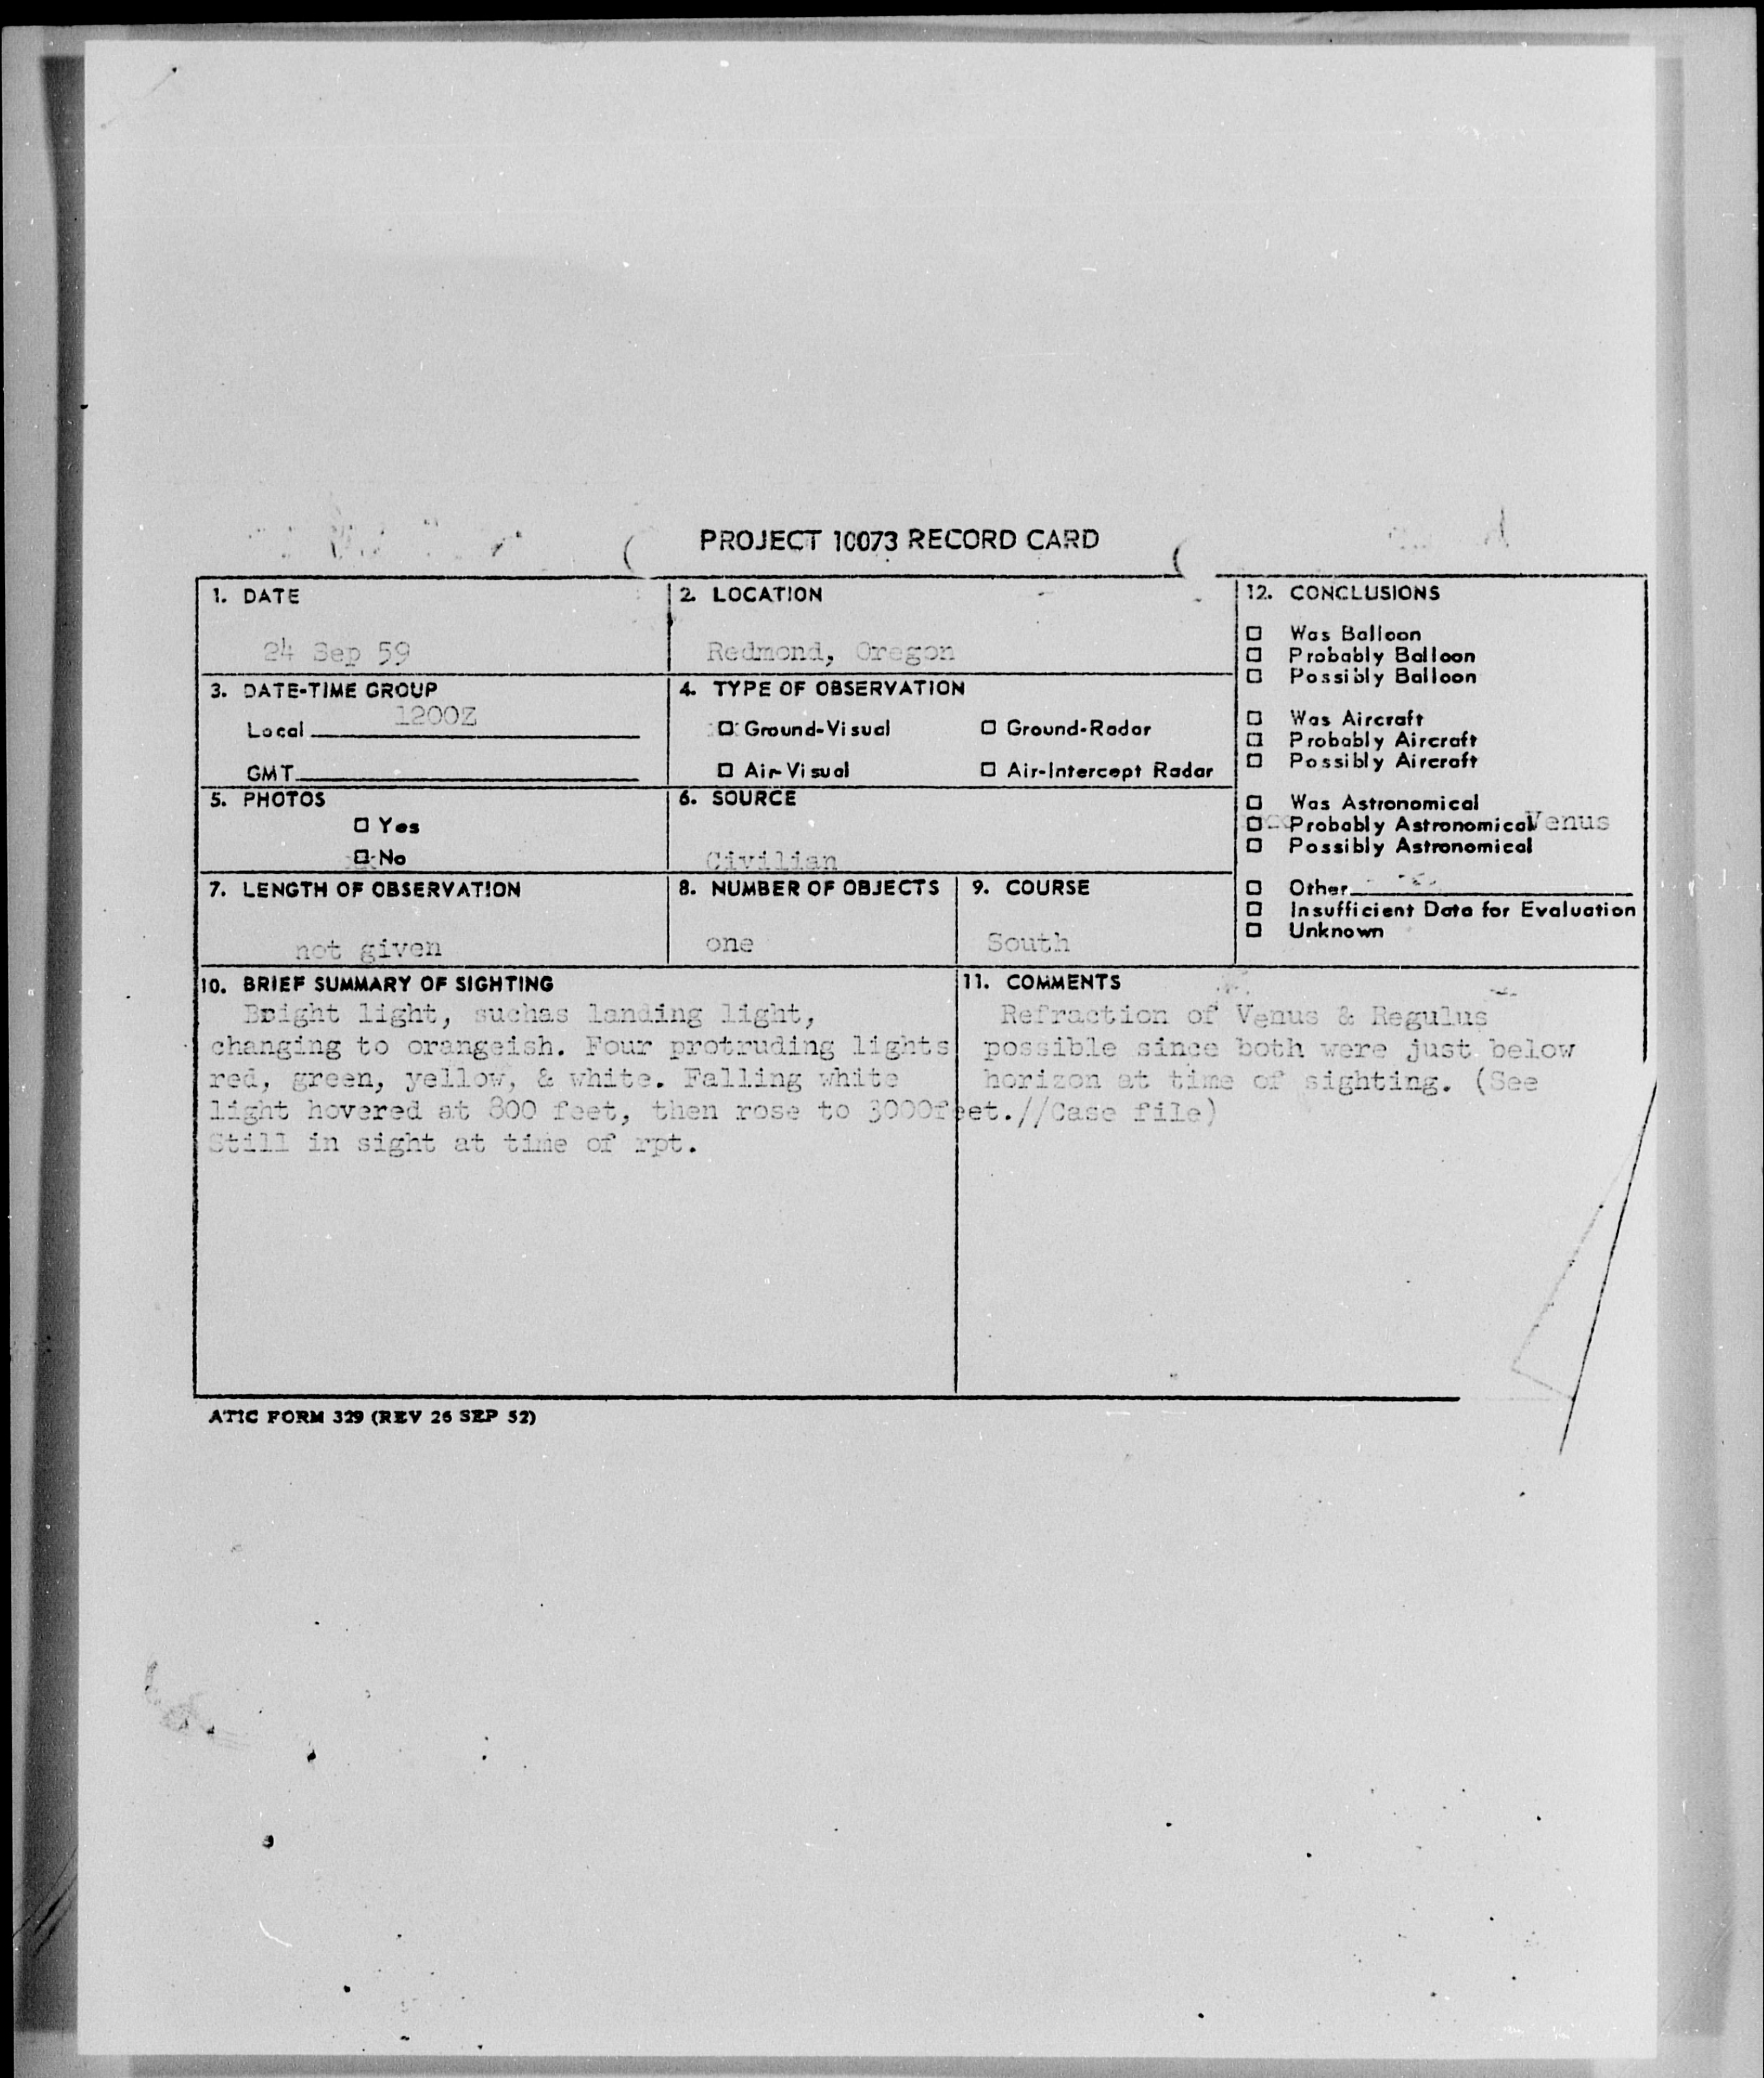 PROJECT 10073 RECORD CARD
1. DATE
24 Sep 59
2. LOCATION
Redmond, Oregon
3. DATE-TIME GROUP
1200Z
Local
GMT
4. TYPE OF OBSERVATION
Ground-Visual
Ground-Radar
Air-Visual
Air-Intercept Radar
5. PHOTOS
Yes
No
6. SOURCE
Civilian
7. LENGTH OF OBSERVATION
not given
8. NUMBER OF OBJECTS
one
9. COURSE
South
12. CONCLUSIONS
Was Balloon
Probably Balloon
Possibly Balloon
Was Aircraft
Probably Aircraft
Possibly Aircraft
Was Astronomical
Probably Astronomical Venus
Possibly Astronomical
Other
Insufficient Data for Evaluation
Unknown
10. BRIEF SUMMARY OF SIGHTING
Bright light, suchas landing light,
changing to orangeish. Four protruding lights
red, green, yellow, & white. Falling white
light hovered at 800 feet, then rose to 3000feet.//
Still in sight at time of rpt.
11. COMMENTS
Refraction of Venus & Regulus
possible since both were just below
horizon at time of sighting. (See
Case file)
ATIC FORM 329 (REV 26 SEP 52)